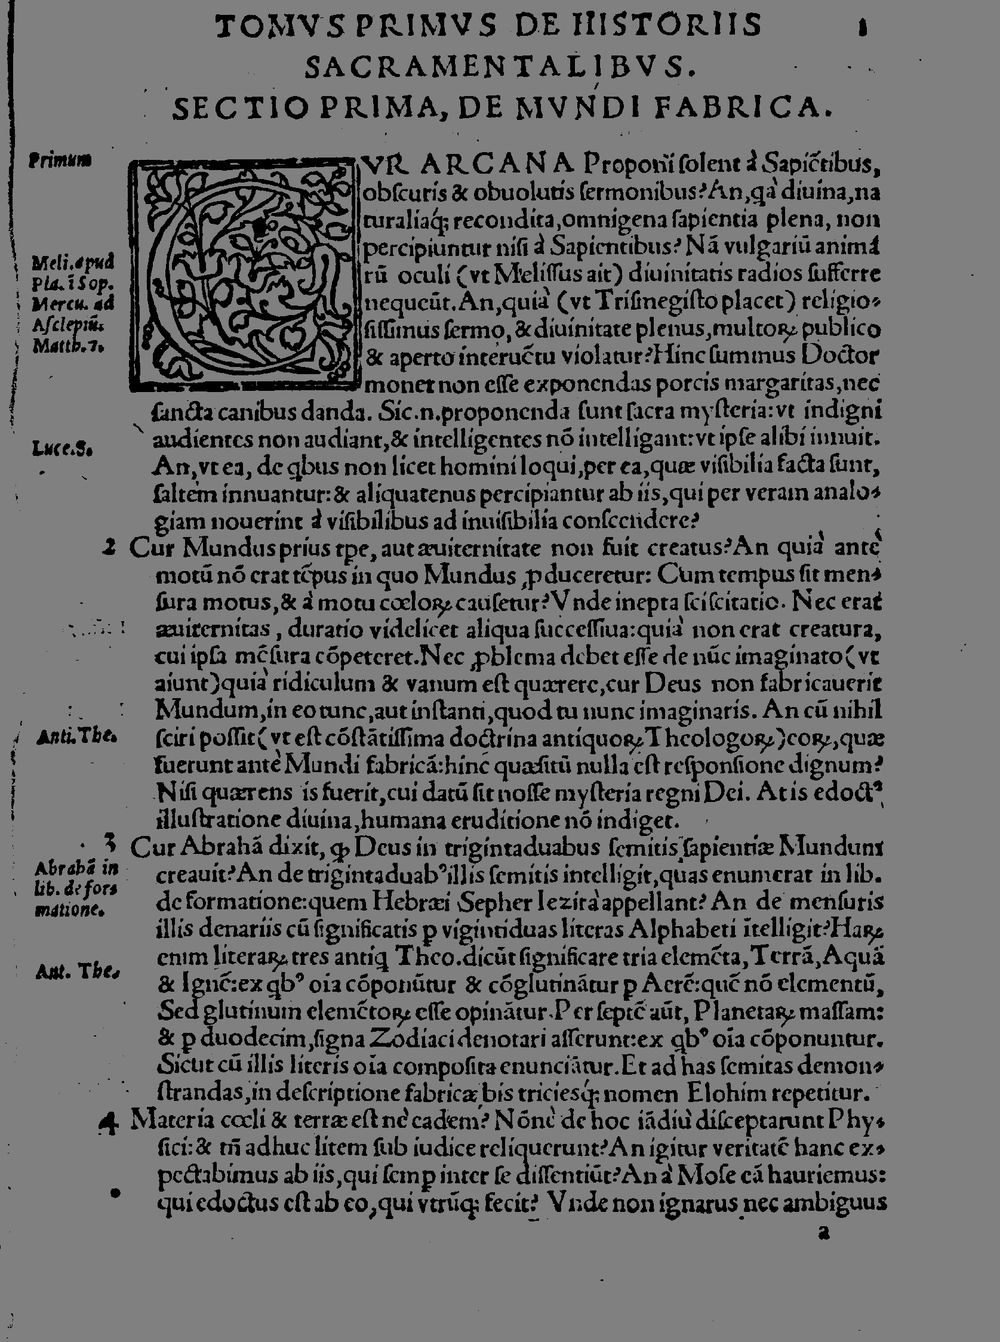 TOMVS PRIMVS DE HISTORIIS 1
SACRAMENTALIBVS.
SECTIO PRIMA, DE MVNDI FABRICA.
Primum
CVR ARCANA Proponi ſolent à Sapiẽtibus,
obſcuris & obuolutis ſermonibus? An, ꝗa diuina, na
turaliaq́; recondita, omnigena ſapientia plena, non
percipiuntur niſi à Sapientibus? Nã vulgariũ animá
rũ oculi (vt Meliſſus ait) diuinitatis radios ſufferre
nequeũt. An, quia (vt Triſmegiſto placet) religio-
ſiſſimus ſermo, & diuinitate plenus, multoꝝ publico
& aperto interuẽtu violatur? Hinc ſummus Doctor
monet non eſſe exponendas porcis margaritas, nec
Meli. apud
Pla. ĩ Sop.
Mercu. ad
Aſclepiũ.
Matth. 7.
ſancta canibus danda. Sic .n. proponenda ſunt ſacra myſteria: vt indigni
audientes non audiant, & intelligentes nõ intelligant: vt ipſe alibi innuit.
Luce. 8.
An, vt ea, de ꝗbus non licet homini loqui, per ea, quæ viſibilia facta ſunt,
ſaltem innuantur: & aliquatenus percipiantur ab iis, qui per veram analo-
giam nouerint à viſibilibus ad inuiſibilia conſcendere?
2 Cur Mundus prius tpe, aut æuiternitate non fuit creatus? An quia ante
motũ nõ erat tẽpus in quo Mundus ꝓduceretur: Cum tempus ſit men-
ſura motus, & à motu cœloꝝ cauſetur? Vnde inepta ſciſcitatio. Nec erat
æuiternitas, duratio videlicet aliqua ſucceſſiua: quia non erat creatura,
cui ipſa mẽſura cõpeteret. Nec ꝓblema debet eſſe de nũc imaginato (vt
aiunt) quia ridiculum & vanum eſt quærere, cur Deus non fabricauerit
Mundum, in eo tunc, aut inſtanti, quod tu nunc imaginaris. An cũ nihil
Anti. The.
ſciri poſſit (vt eſt cõſtãtiſſima doctrina antiquoꝝ Theologoꝝ) eoꝝ, quæ
fuerunt ante Mundi fabricã: hinc quæſitũ nulla eſt reſponſione dignum?
Niſi quærens is fuerit, cui datũ ſit noſſe myſteria regni Dei. At is edoctꝰ
illuſtratione diuina, humana eruditione nõ indiget.
3 Cur Abrahã dixit, ꝙ Deus in trigintaduabus ſemitis ſapientiæ Mundum
Abrahã in
lib. de for-
matione.
creauit? An de trigintaduabꝰ illis ſemitis intelligit, quas enumerat in lib.
de formatione: quem Hebræi Sepher Iezira appellant? An de menſuris
illis denariis cũ ſignificatis ꝑ vigintiduas literas Alphabeti ĩtelligit? Haꝝ
enim literaꝝ tres antiꝗ Theo. dicũt ſignificare tria elemẽta, Terrã, Aquã
Ant. The.
& Ignẽ: ex ꝗbꝰ oĩa cõponũtur & cõglutinãtur ꝑ Aerẽ: quẽ nõ elementũ,
Sed glutinum elemẽtoꝝ eſſe opinãtur. Per ſeptẽ aũt, Planetaꝝ maſſam:
& ꝑ duodecim, ſigna Zodiaci denotari aſſerunt: ex ꝗbꝰ oĩa cõponuntur.
Sicut cũ illis literis oĩa compoſita enunciãtur. Et ad has ſemitas demon-
ſtrandas, in deſcriptione fabricæ bis triciesq́; nomen Elohim repetitur.
4 Materia cœli & terræ eſt ne eadem? Nõne de hoc iãdiu diſceptarunt Phy-
ſici: & tñ adhuc litem ſub iudice reliquerunt? An igitur veritatẽ hanc ex-
pectabimus ab iis, qui ſemꝑ inter ſe diſſentiũt? An à Moſe eã hauriemus:
qui edoctus eſt ab eo, qui vtrũq; fecit? Vnde non ignarus nec ambiguus
a